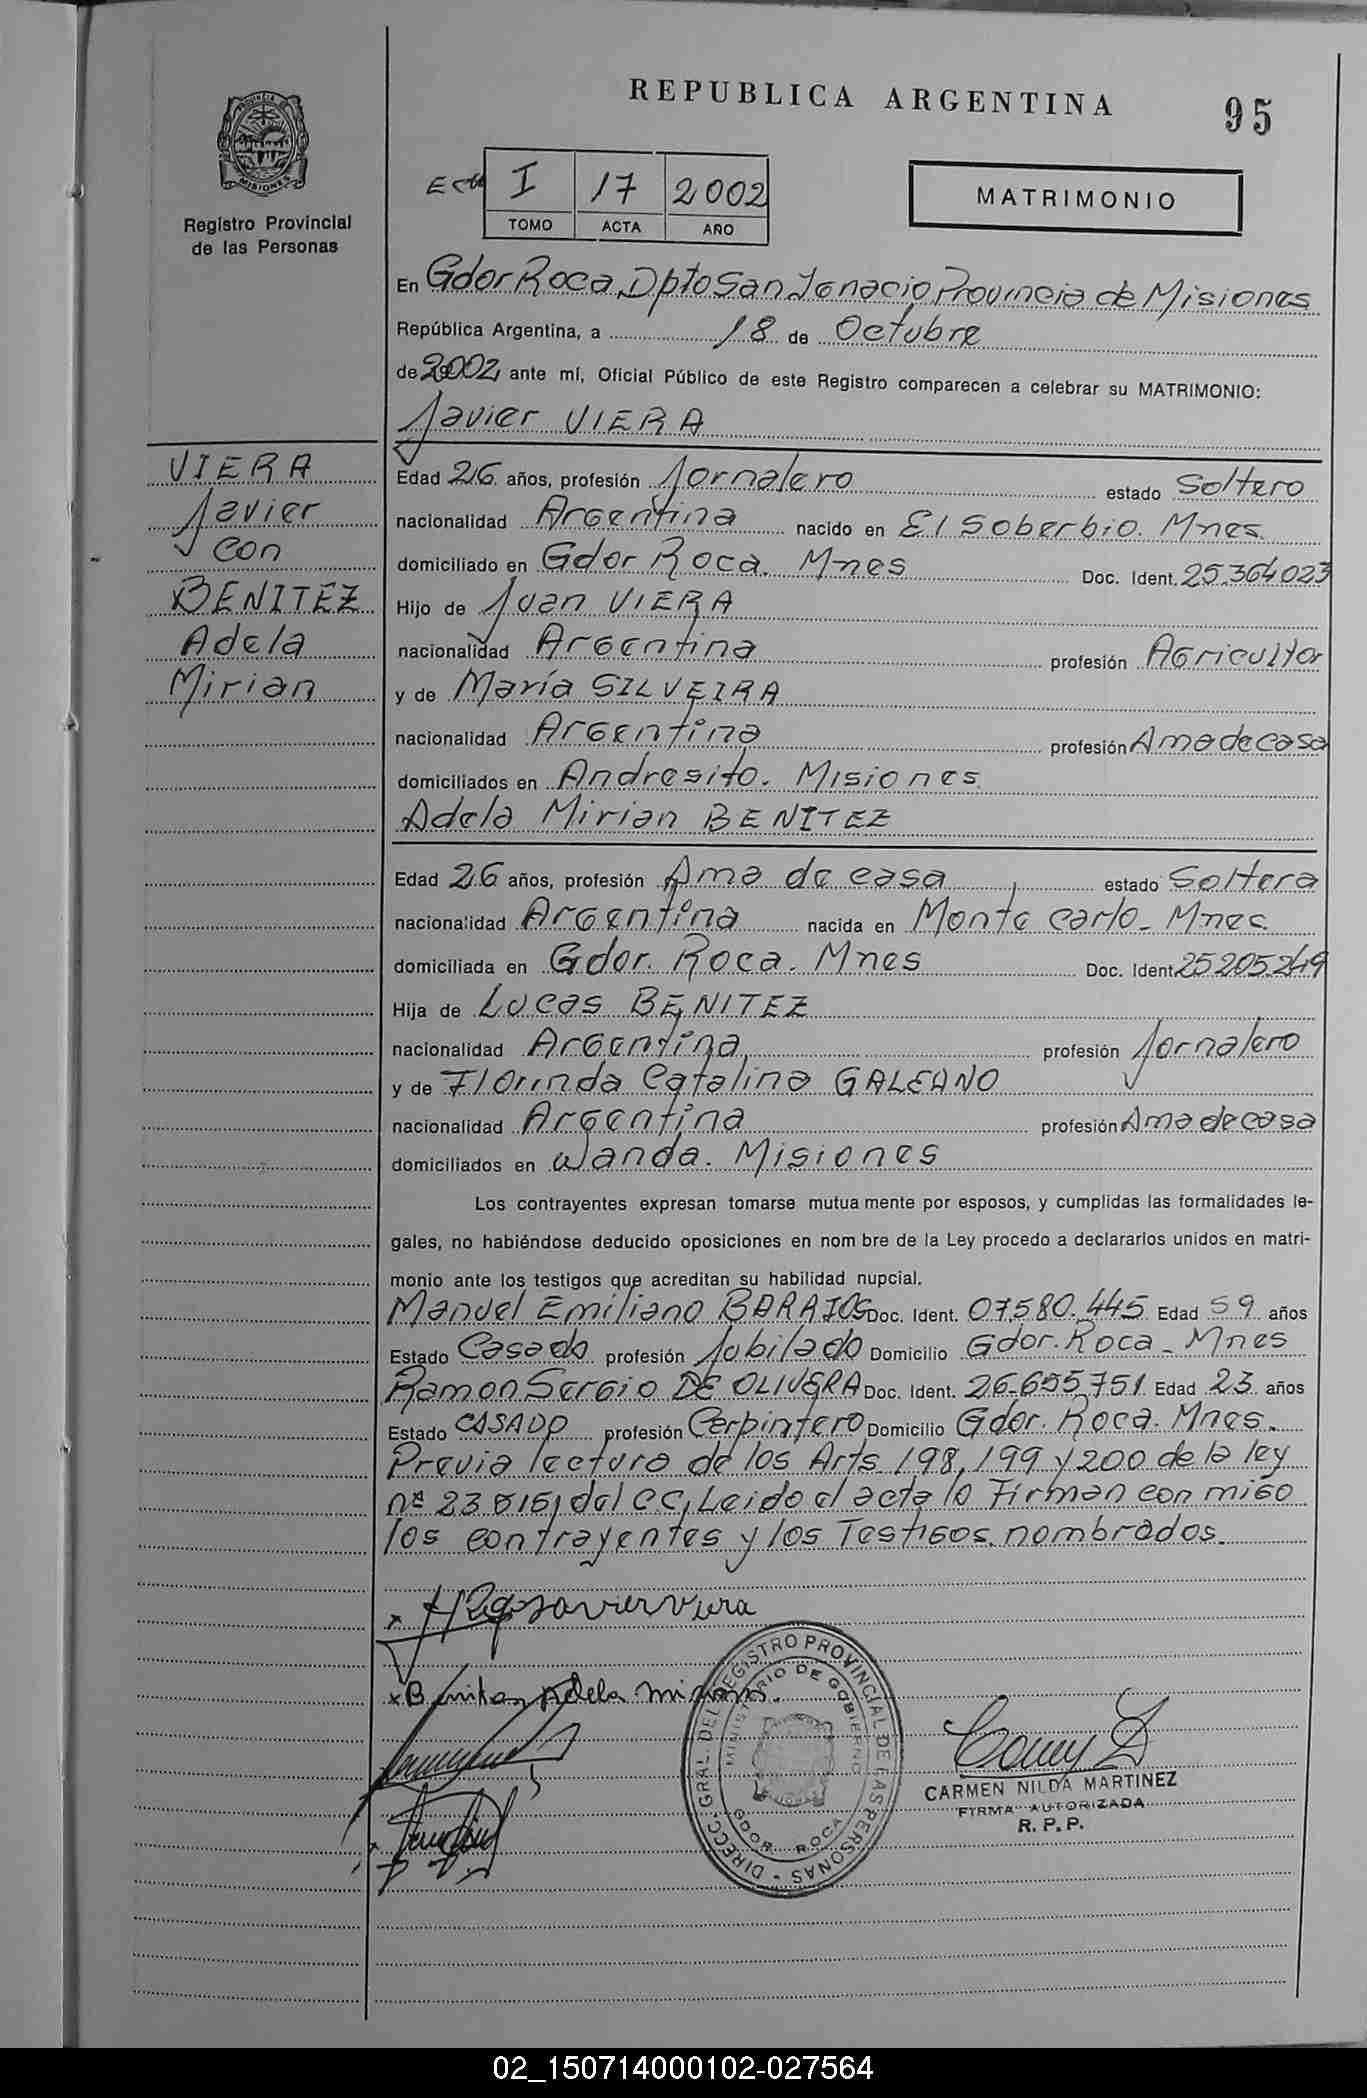 REPUBLICA ARGENTINA
95
PROVINCIA DE
MISIONES
Registro Provincial
de las Personas
I 17 2002
TOMO ACTA AÑO
MATRIMONIO
En Gdor Roca, Dpto San Ignacio, Provincia de Misiones
República Argentina, a 18 de Octubre
de 2002, ante mí, Oficial Público de este Registro comparecen a celebrar su MATRIMONIO:
Javier VIERA
VIERA
Javier
con
BENITEZ
Adela
Mirian
Edad 26 años, profesión Jornalero estado Soltero
nacionalidad Argentina nacido en El Soberbio. Mnes.
domiciliado en Gdor Roca. Mnes Doc. Ident. 25.364.023
Hijo de Juan VIERA
nacionalidad Argentina profesión Agricultor
y de María SILVEIRA
nacionalidad Argentina profesión Ama de casa
domiciliados en Andresito. Misiones
Adela Mirian BENITEZ
Edad 26 años, profesión Ama de casa estado Soltera
nacionalidad Argentina nacida en Monte carlo - Mnes.
domiciliada en Gdor. Roca. Mnes Doc. Ident. 25205.249
Hija de Lucas BENITEZ
nacionalidad Argentina profesión Jornalero
y de Florinda Catalina GALEANO
nacionalidad Argentina profesión Ama de casa
domiciliados en Wanda. Misiones
Los contrayentes expresan tomarse mutua mente por esposos, y cumplidas las formalidades le-
gales, no habiéndose deducido oposiciones en nom bre de la Ley procedo a declararlos unidos en matri-
monio ante los testigos que acreditan su habilidad nupcial.
Manuel Emiliano Doc. Ident. 07.580.445 Edad 59 años
Estado Casado profesión Jubilado Domicilio Gdor. Roca - Mnes
Ramon Sergio DE OLIVERA Doc. Ident. 26.655.751 Edad 23 años
Estado CASADO profesión Carpintero Domicilio Gdor. Roca. Mnes.
Previa lectura de los Arts. 198, 199 y 200 de la ley
nº 23.515, del CC, Leido el acta lo Firman con migo
los contrayentes y los Testigos nombrados.
x Javier Viera
x Benitez Adela Mirian
DIRECC. GRAL. DEL REGISTRO PROVINCIAL DE LAS PERSONAS
MINISTERIO DE GOBIERNO
GDOR. ROCA
CARMEN NILDA MARTINEZ
FIRMA AUTORIZADA
R. P. P.
02_150714000102-027564